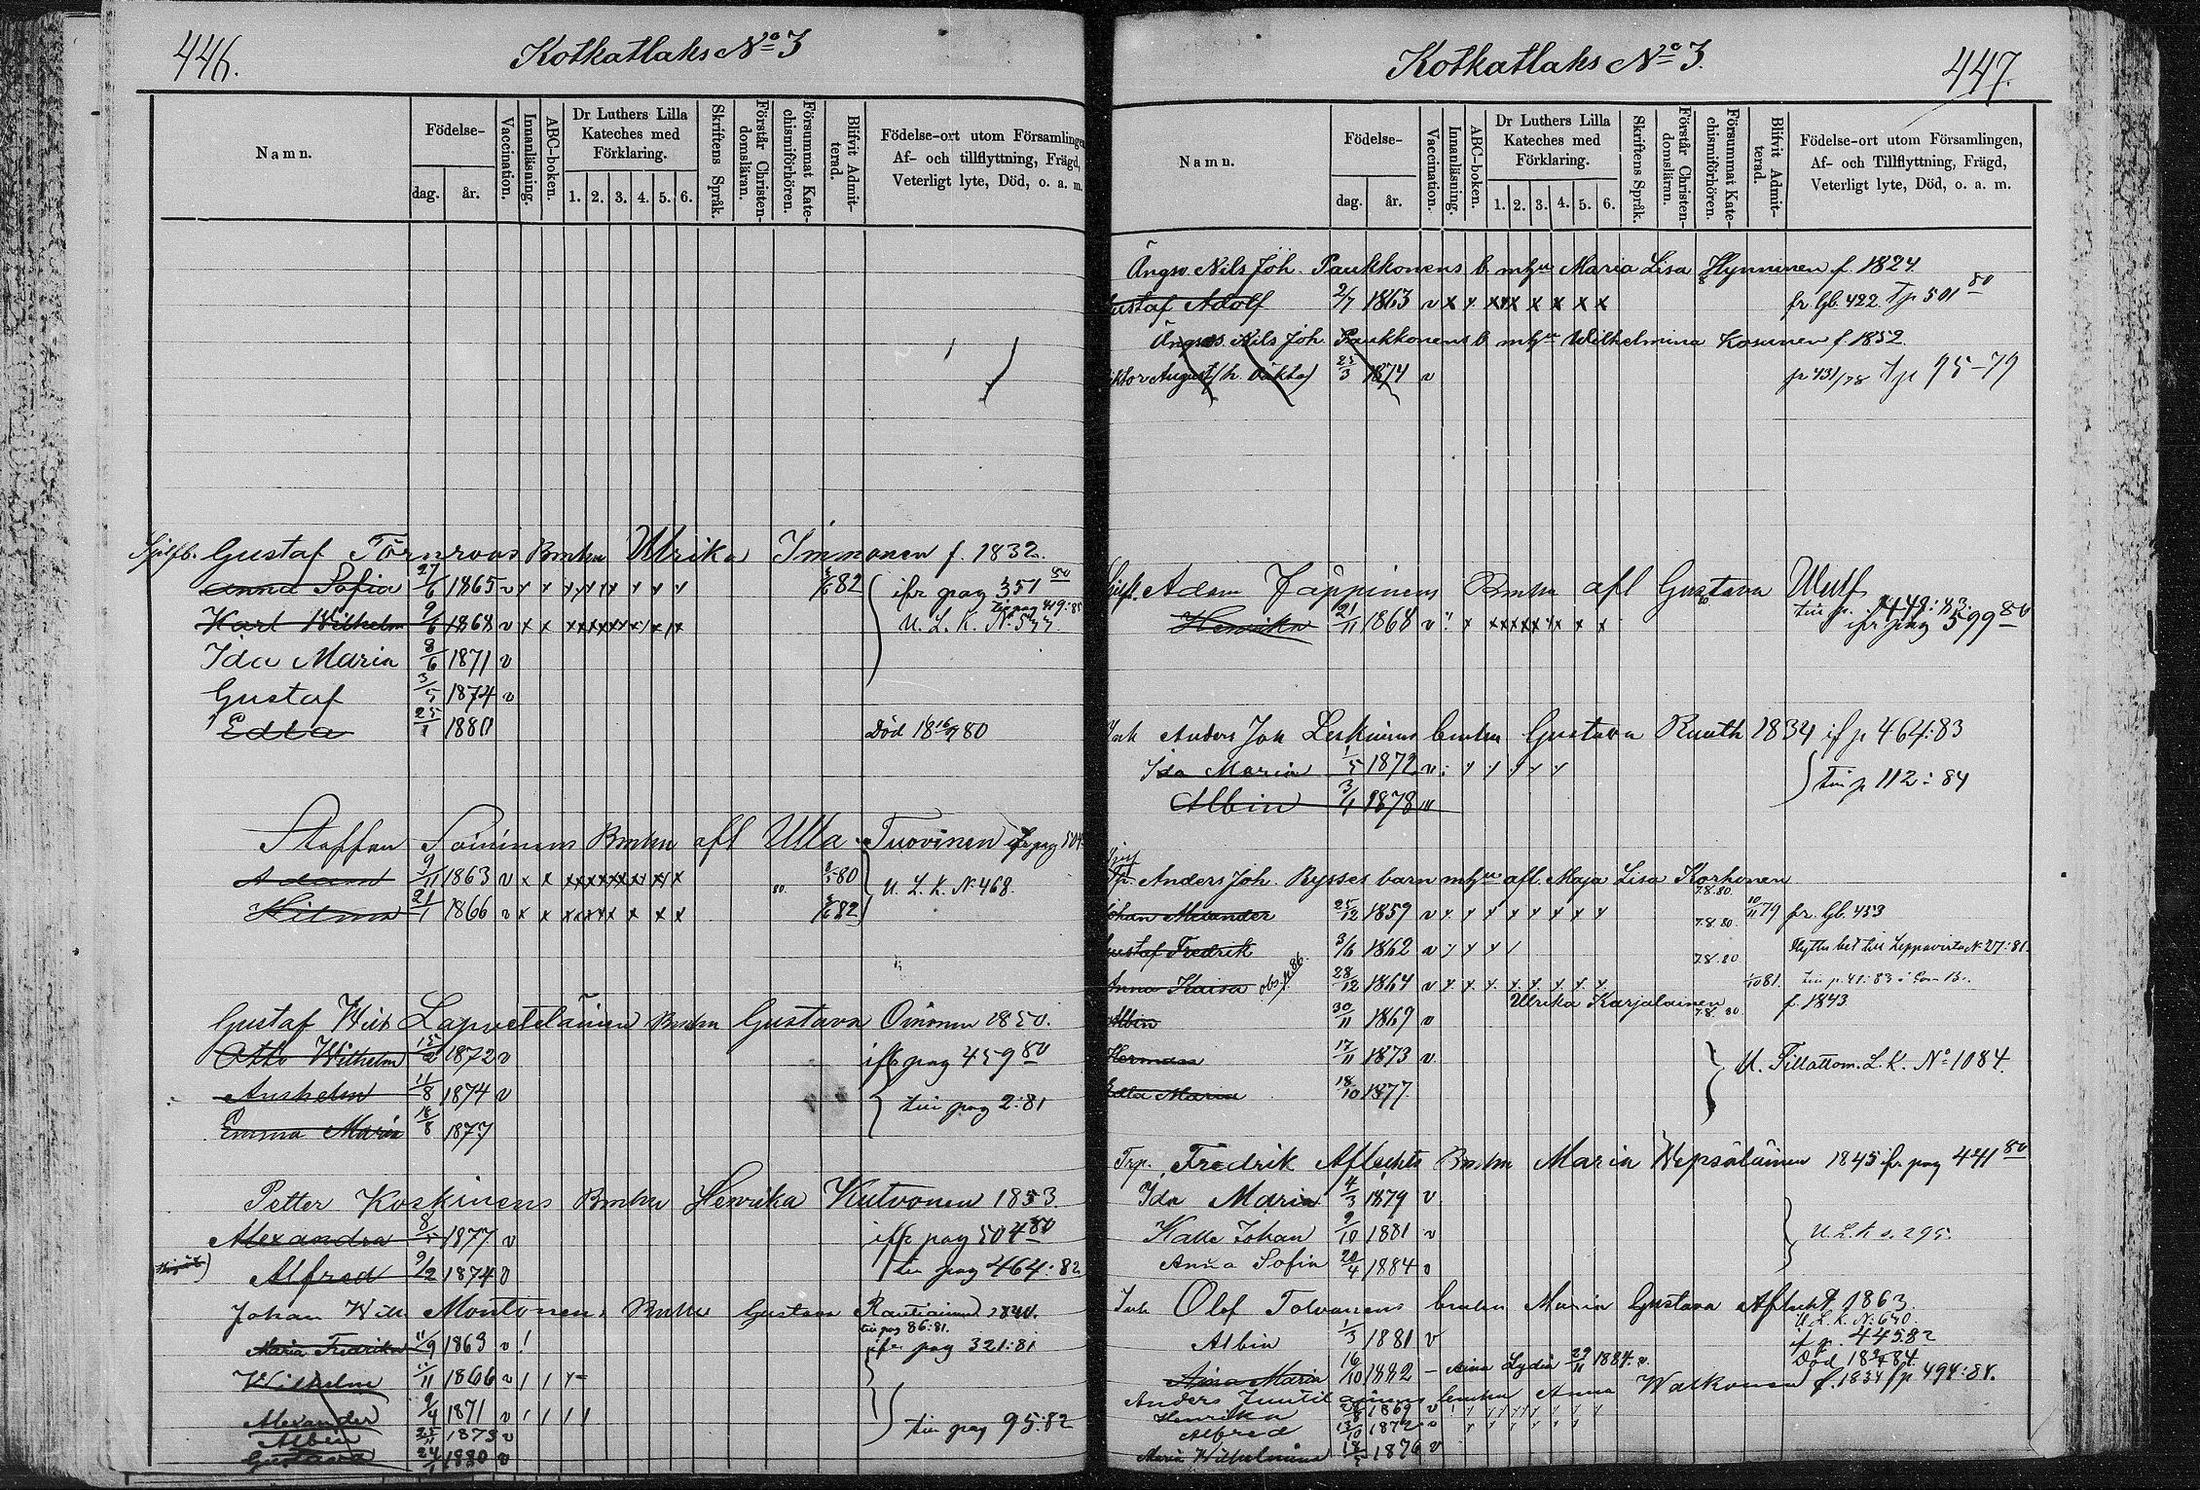 446.
Kotkatlaks No 3
Namn.
Födelse-
dag.
år.
Vaccination.
Innanläsning.
ABC-boken.
Dr Luthers Lilla
Kateches med
Förklaring.
1. 2. 3. 4. 5. 6.
Skriftens Språk.
Förstår Christen-
domsläran.
Försummat Kate-
chismiförhören.
Blifvit Admit-
terad.
Födelse-ort utom Församlingen
Af- och tillflyttning, Frägd,
Veterligt lyte, Död, o. a. m.
Gustaf Törnroos Bmhu Ulrika Immonen f. 1832.
Anna Sofia 27/6 1865 v x x x x x x x x x 82 ifr pag 351 80
Karl Wilhelm 9/6 1868 v x x x x x x x x x U. L. K. No 577
Ida Maria 8/6 1871 v
Gustaf 3/5 1874 v
Edla 25/1 1880 Död 18 16/9 80
Staffan Soininens Bmhu afl Ulla Tuovinen
Adam 9/11 1863 v x x x x x x x x x 80 U. L. K. N. 468.
Hilma 21/1 1866 v x x x x x x x x x 82
Gustaf Wilh Lapveteläinen Bmhu Gustava Oinonen 1850.
Otto Wilhelm 15/2 1872 v ifr pag 459 80
Anshelm 11/8 1874 v till pag 2:81
Emma Maria 18/8 1877
Petter Koskinens Bmhu Henrika Kutvonen 1853.
Alexandra 8/5 1877 v ifr pag 504 80
Alfred 9/2 1874 v till pag 464:82
Johan Wilh Montonens Bmhu Gustava Rautiainen 1840.
till pag 86:81.
Maria Fredrika 11/9 1863 v ifr pag 321:81
Wilhelm 11/11 1866 v
Alexander 9/4 1871 v till pag 95:82
Albin 25/11 1873 v
Gustava 24/1 1880 v
447.
Kotkatlaks No 3.
Namn.
Födelse-
dag.
år.
Vaccination.
Innanläsning.
ABC-boken.
Dr Luthers Lilla
Kateches med
Förklaring.
1. 2. 3. 4. 5. 6.
Skriftens Språk.
Förstår Christen-
domsläran.
Försummat Kate-
chismiförhören.
Blifvit Admit-
terad.
Födelse-ort utom Församlingen,
Af- och Tillflyttning, Frägd,
Veterligt lyte, Död, o. a. m.
Ängsv. Nils Joh. Paukkonens b. mhu Maria Lisa Hynninen f. 1824
Gustaf Adolf 2/7 1863 v x x x x x x x x x fr. Gb. 422. T p 501 80
Ängsv. Nils Joh. Paukkonens b mhu Wilhelmina Kosunen f. 1852.
Viktor August 25/3 1874 v fr 431/78 T p 95-79
Adam Jäppinens Bmhu afl Gustava Wulf
Henrika 21/11 1868 v x x x x x x x x ifr pag 599 80
Inh Anders Joh Leskinens bmhu Gustava Ruuth 1834 if p 464:83
Ida Maria 1/5 1872 v x x x x x till p 112:84
Albin 3/4 1878 v
Anders Joh. Rysses barn mhu afl. Maja Lisa Korhonen
Johan Alexander 25/12 1859 v x x x x x x x x 10/11 79 fr. Gb. 433
Gustaf Fredrik 3/6 1862 v x x x Flyttn bet till Leppävirta N. 27:81.
Anna Kaisa 28/12 1864 v x x x x x x x x 81.
Ulrika Karjalainen f. 1843
Albin 30/11 1869 v
Herman 17/11 1873 v U. Tillattom. L. K. No 1084.
Edla Maria 18/10 1877.
Trp. Fredrik Aflechts Bmhu Maria Wepsäläinen 1845 fr pag 441 80
Ida Maria 4/3 1879 v
Kalle Johan 9/10 1881 v U. L. K s. 295.
Anna Sofia 20/4 1884 v
Inh Olof Tolvanens bmhu Maria Gustava Aflecht 1863.
U. L. K. N: 640.
Albin 1/3 1881 v
Aina Maria 16/10 1882 - Aina Lydia 29/11 1884. v.
Anders Juutilainens bmhu Anna Walkonen f. 1834 fr p 494:84.
Henrika 1869 v
Alfred 13/10 1872 v
Maria Wilhelmina 1876 v